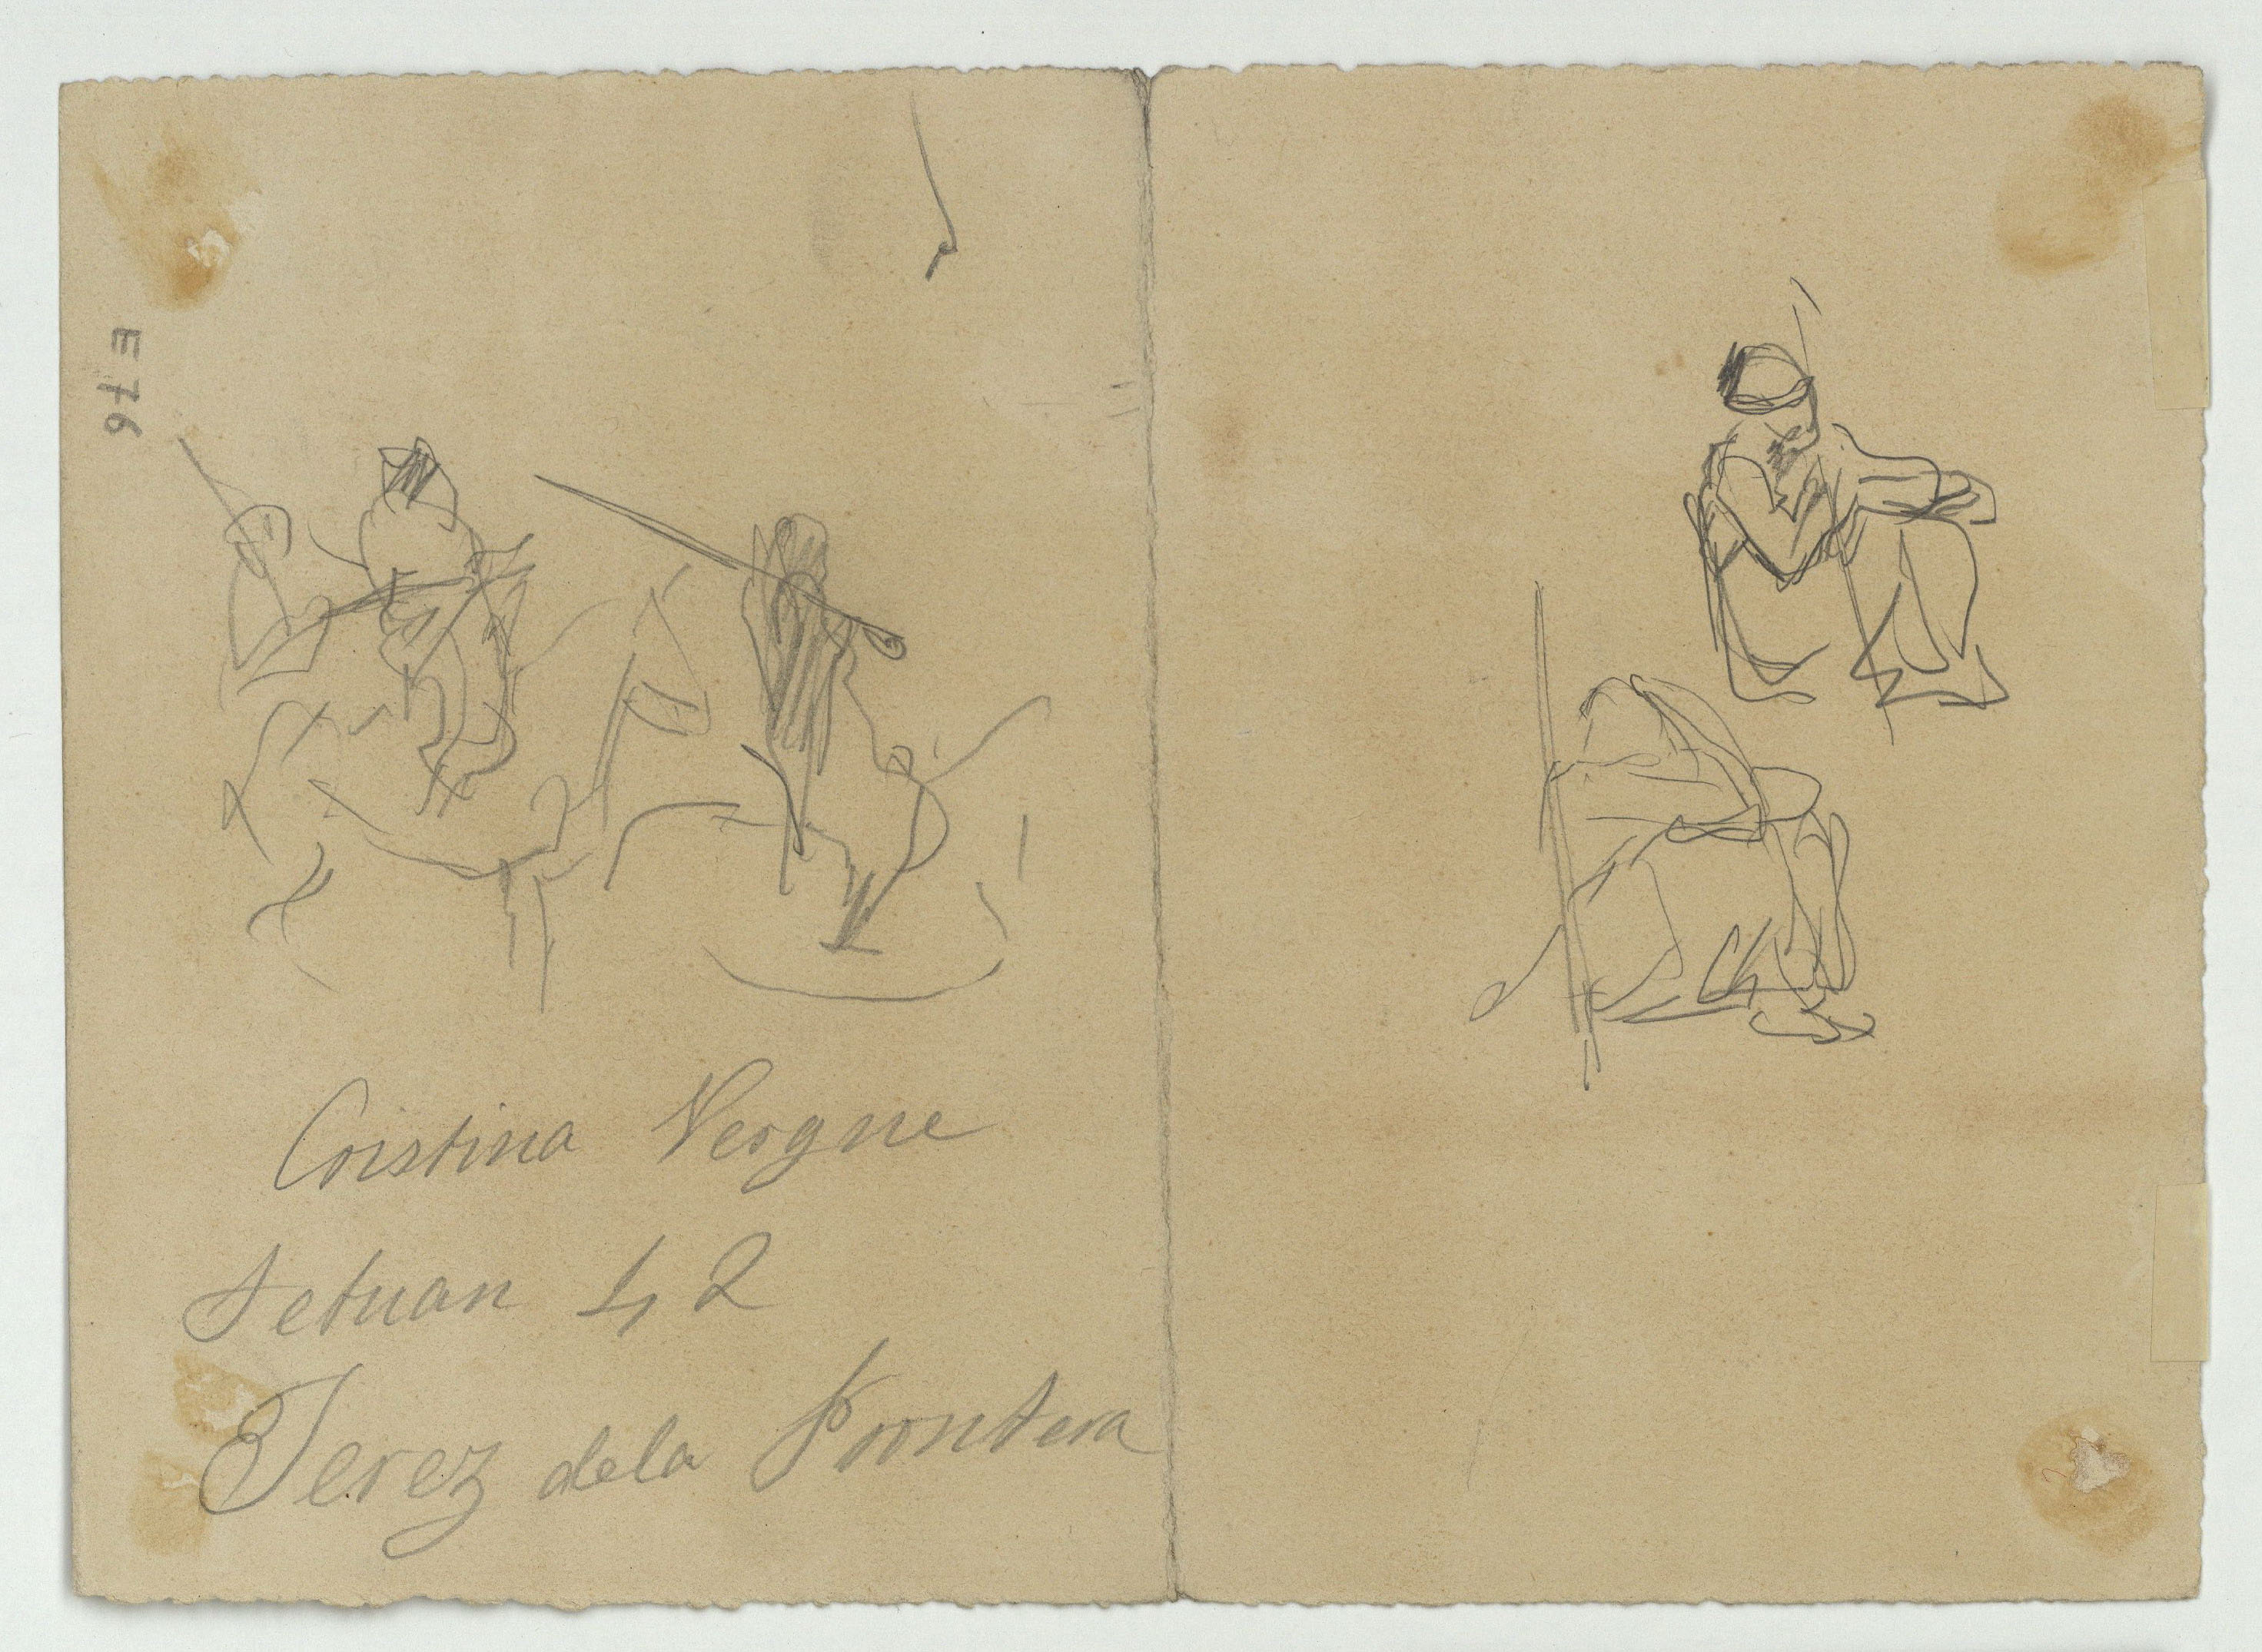 E 76
Cristina Vergne
tetuan 42
Jerez dela Frontera